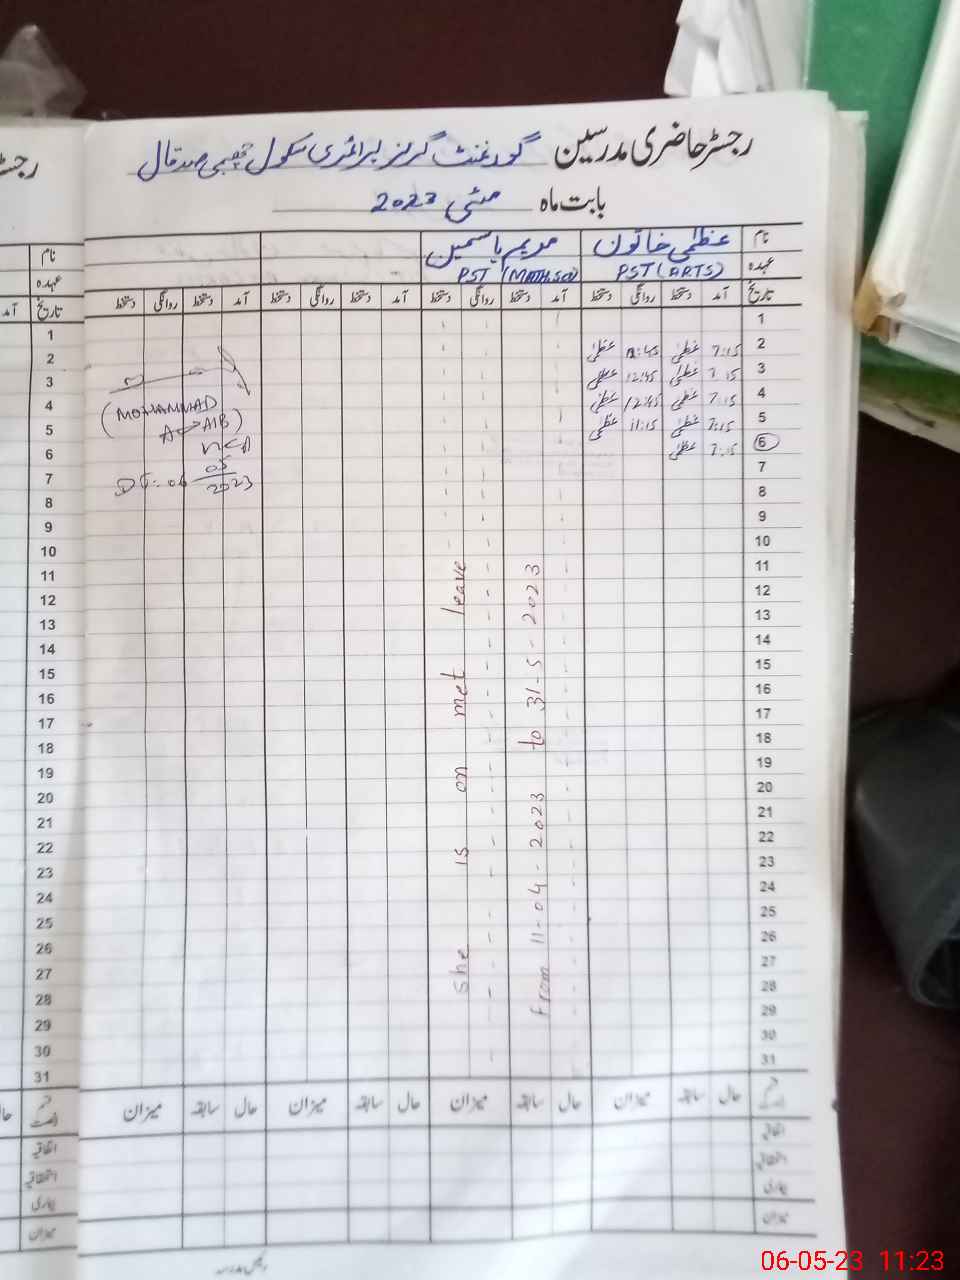 رجسٹر حاضری مدرسین گورنمنٹ گرلز پرائمری سکول
بابت ماہ مئی 2023
نام عظمٰی خاتون مریم یاسمین
عہدہ PST (ARTS) PST (MATH, Sci)
تاریخ آمد دستخط روانگی دستخط آمد دستخط روانگی دستخط آمد دستخط روانگی دستخط آمد دستخط روانگی دستخط
1
2 7:15 عظمٰی 12:45 عظمٰی
3 7:15 عظمٰی 12:45 عظمٰی
4 7:15 عظمٰی 12:45 عظمٰی
5 7:15 عظمٰی 11:15 عظمٰی
6 7:15 عظمٰی
7
8
9
10
11
12
13
14
15
16
17
18
19
20
21
22
23
24
25
26
27
28
29
30
31
She is on met leave
From 11-04-2023 to 31-5-2023
(MOHAMMAD
05
2023
حال سابقہ میزان حال سابقہ میزان حال سابقہ میزان حال سابقہ میزان
اتفاقیہ
استحقاقیہ
بیماری
میزان
رئیس مدرسہ
رجسٹ
نام
عہدہ
تاریخ آمد
1
2
3
4
5
6
7
8
9
10
11
12
13
14
15
16
17
18
19
20
21
22
23
24
25
26
27
28
29
30
31
اتفاقیہ
استحقاقیہ
بیماری
میزان
06-05-23 11:23